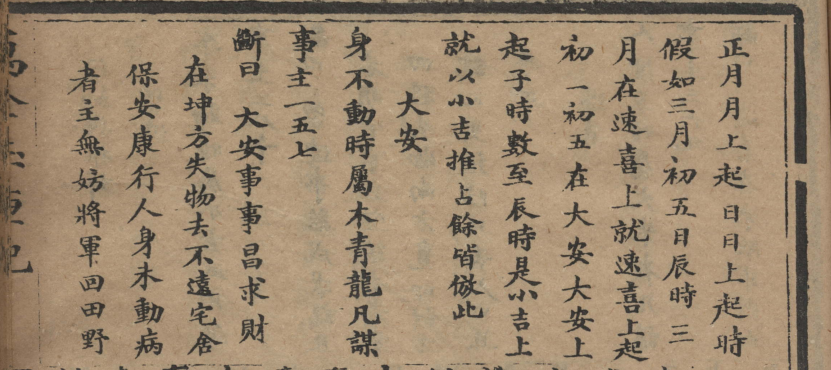 正月月上起日日上起時
假如三月初五日辰時三
月在速喜上就速喜上起
初一初五在大安大安上
起子時數至辰時是小吉上
就以小吉推占餘皆倣此
大安
身不動時屬木青龍凡謀
事主一五七
斷曰 大安事事昌求財
在坤方失物去不遠宅舍
保安康行人身未動病
者主無妨將軍回田野